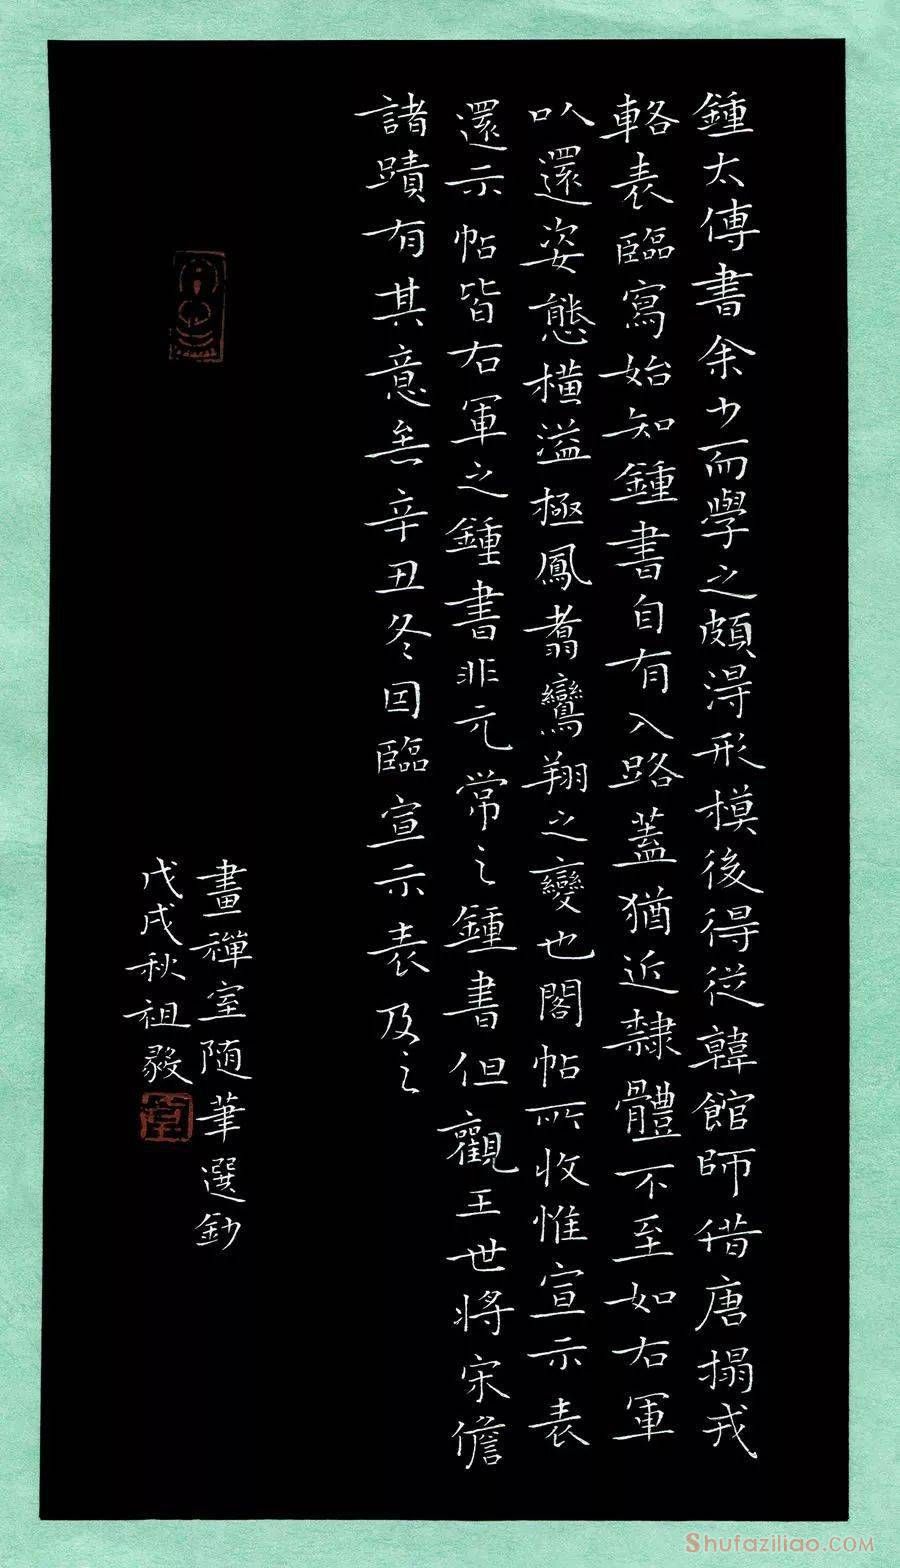 鍾太傅書余少而學之頗淂形模後得從韓館師借唐搨戎
輅表臨寫始知鍾書自有入路蓋猶近隸體不至如右軍
以還姿態橫溢極鳳翥鸞翔之變也閣帖所收惟宣示表
還示帖皆右軍之鍾書非元常之鍾書但觀王世將宋儋
諸蹟有其意矣辛丑冬因臨宣示表及之
畫禪室随筆選鈔
戊戌秋祖毅
Shufaziliao.COM